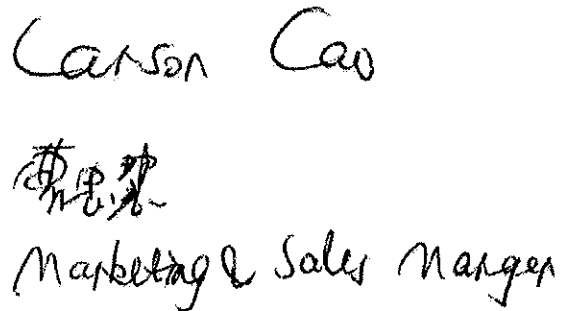 Carson Cao
曹思
Marketing & Sales Manger